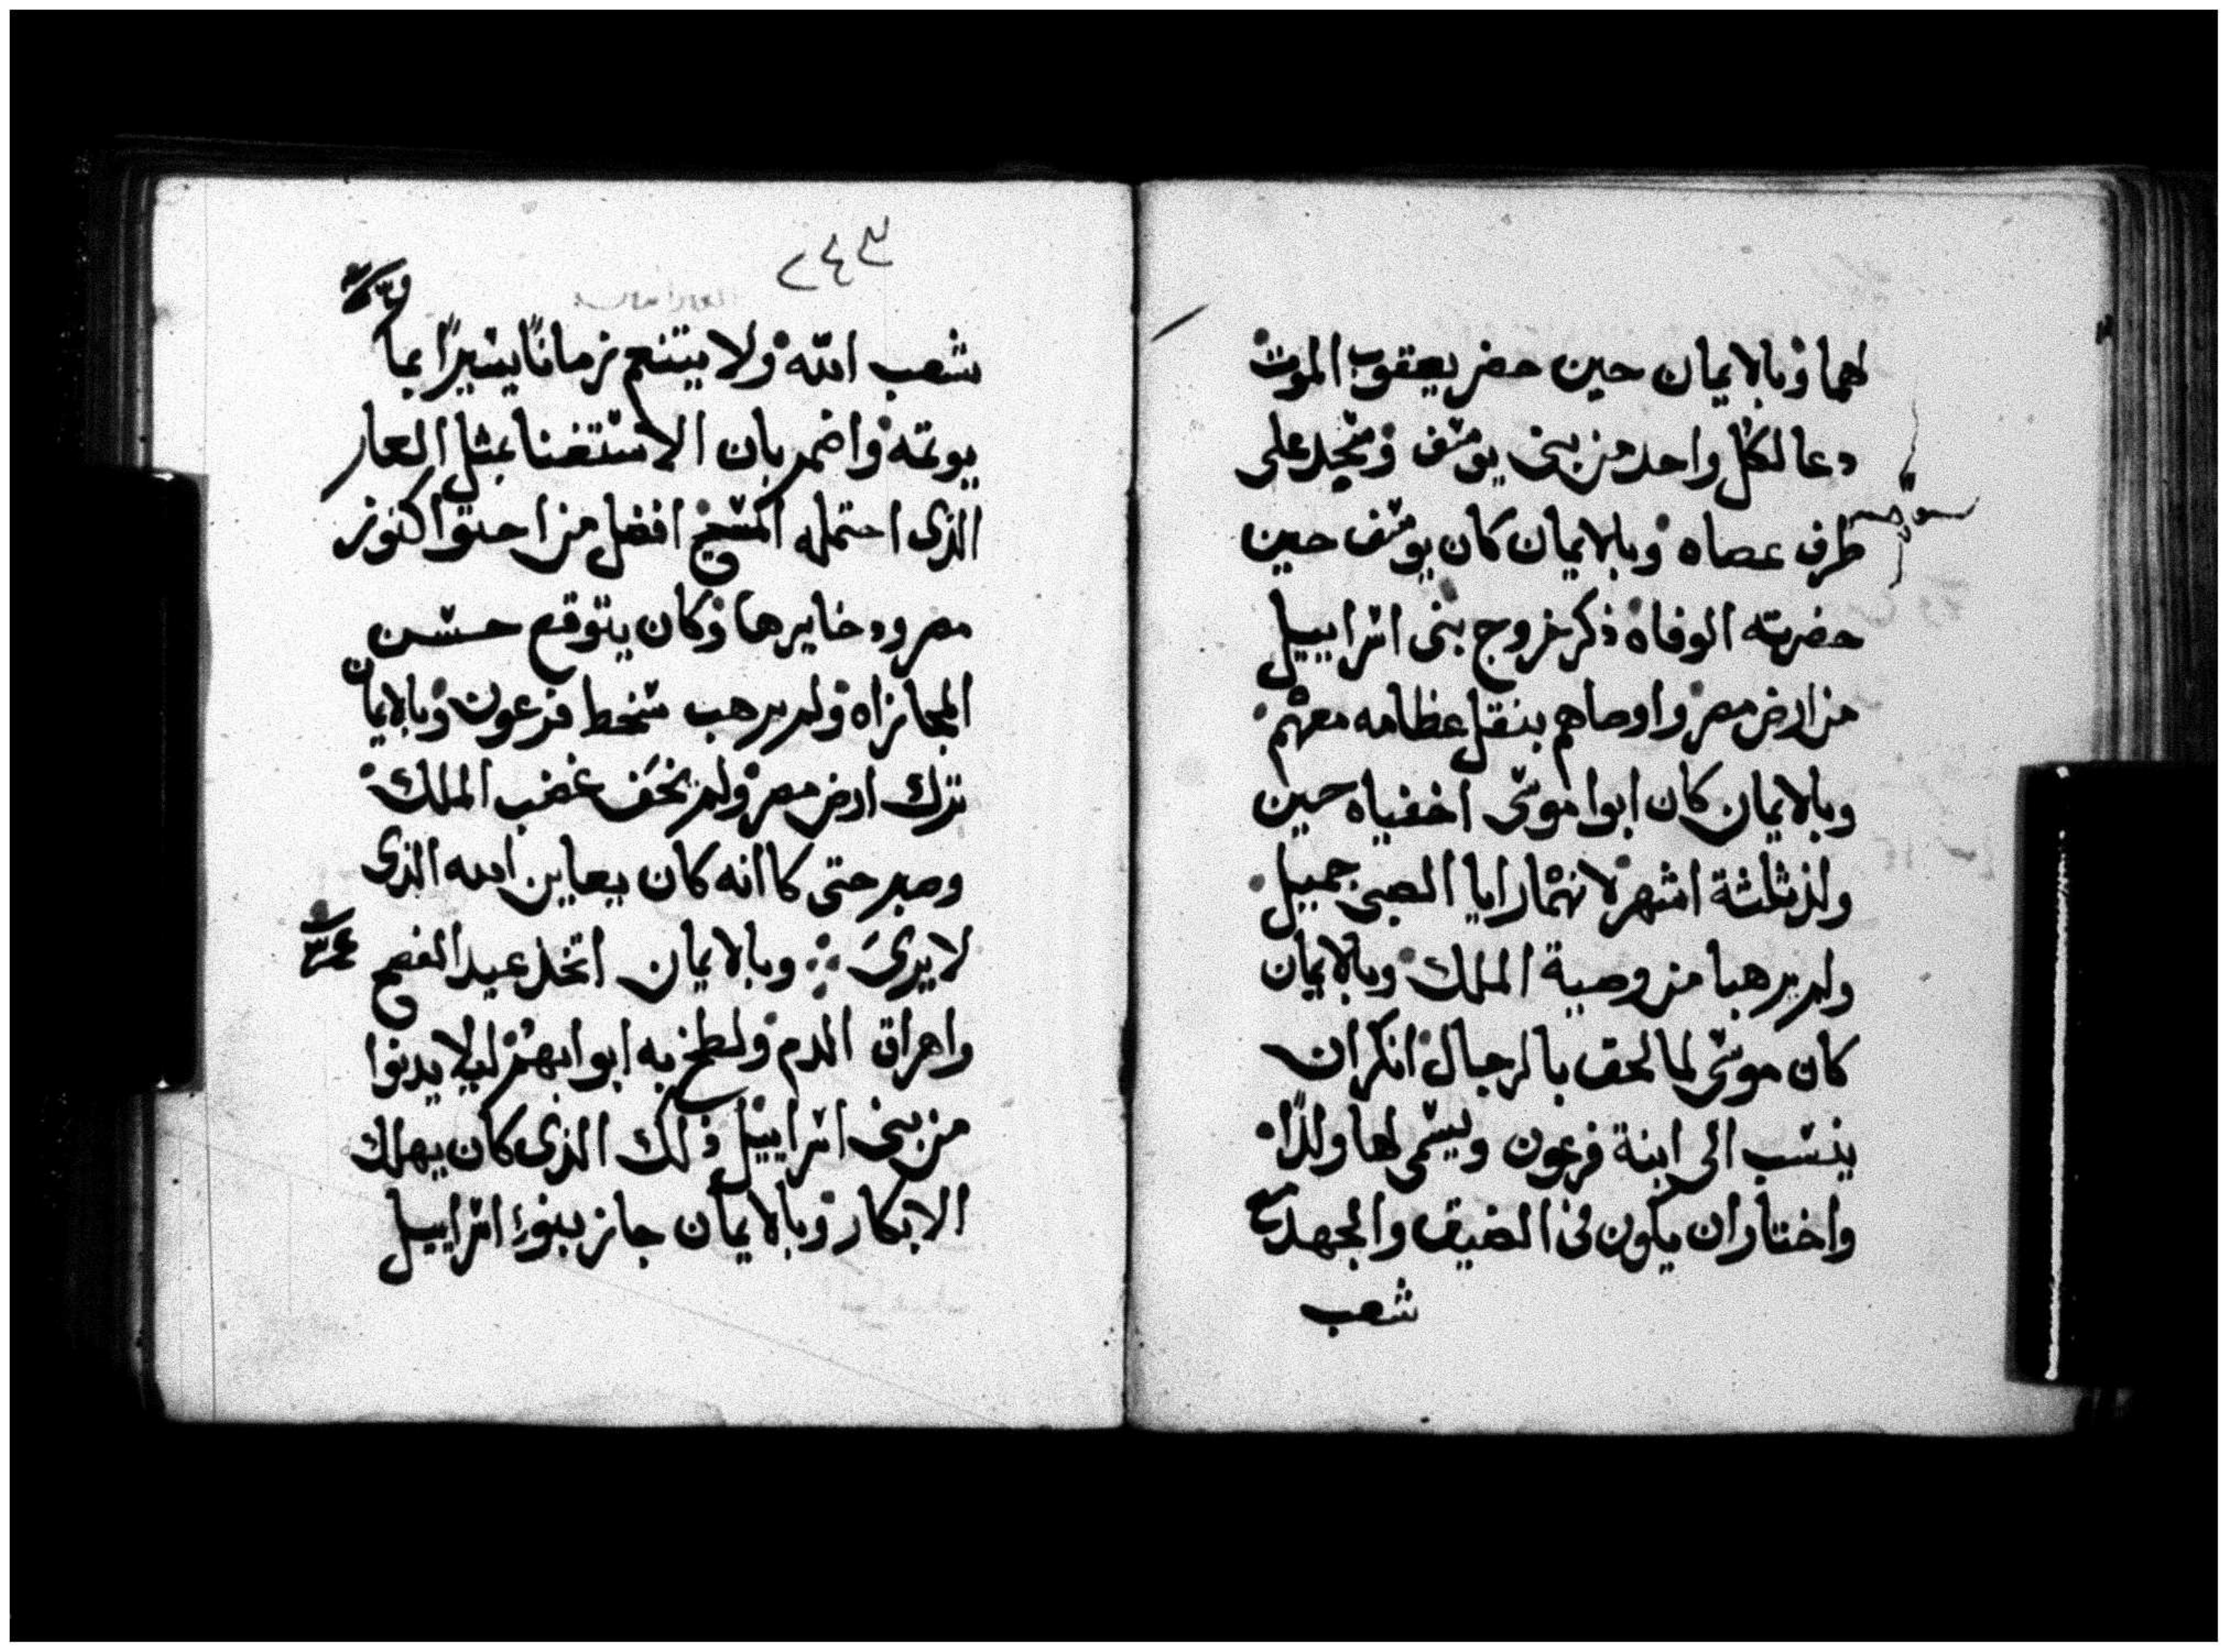 لهما وبالايمان حين حضر يعقوب الموت
دعا لكل واحد من بني يوسف وسجد على
طرف عصاه وبالايمان كان يوسف حين
حضرته الوفاه ذكر خروج بني اسراييل
من ارض مصر واوصاهم بنقل عظامه معهم
وبالايمان كان ابوا موسى اخفياه حين
ولد ثلثة اشهر لانهما رايا الصبي جميل
ولم يرهبا من وصية الملك وبالايمان
كان موسى لما لحق بالرجال انكر ان
ينسب الى ابنة فرعون ويسمى لها ولدًا
واختار ان يكون في الضيق والجهد مع
شعب
٢٤٣
شعب الله ولا يتنعم زمانًا يسيرًا بما
يوتمه واضمر بان الاستغنا بمثل العار
الذى احتمله المسيح افضل من احتوا كنوز
مصر ودخايرها وكان يتوقع حسن
المجازاه ولم يرهب سخط فرعون وبالايمان
ترك ارض مصر ولم يخف غضب الملك
وصبر حتى كاانه كان يعاين الله الذى
لا يرىَ وبالايمان اتخذ عيد الفصح
واهراق الدم ولطخ به ابوابهم ليلا يدنوا
من بني اسراييل ذلك الذى كان يهلك
الابكار وبالايمان جاز بنوا اسراييل